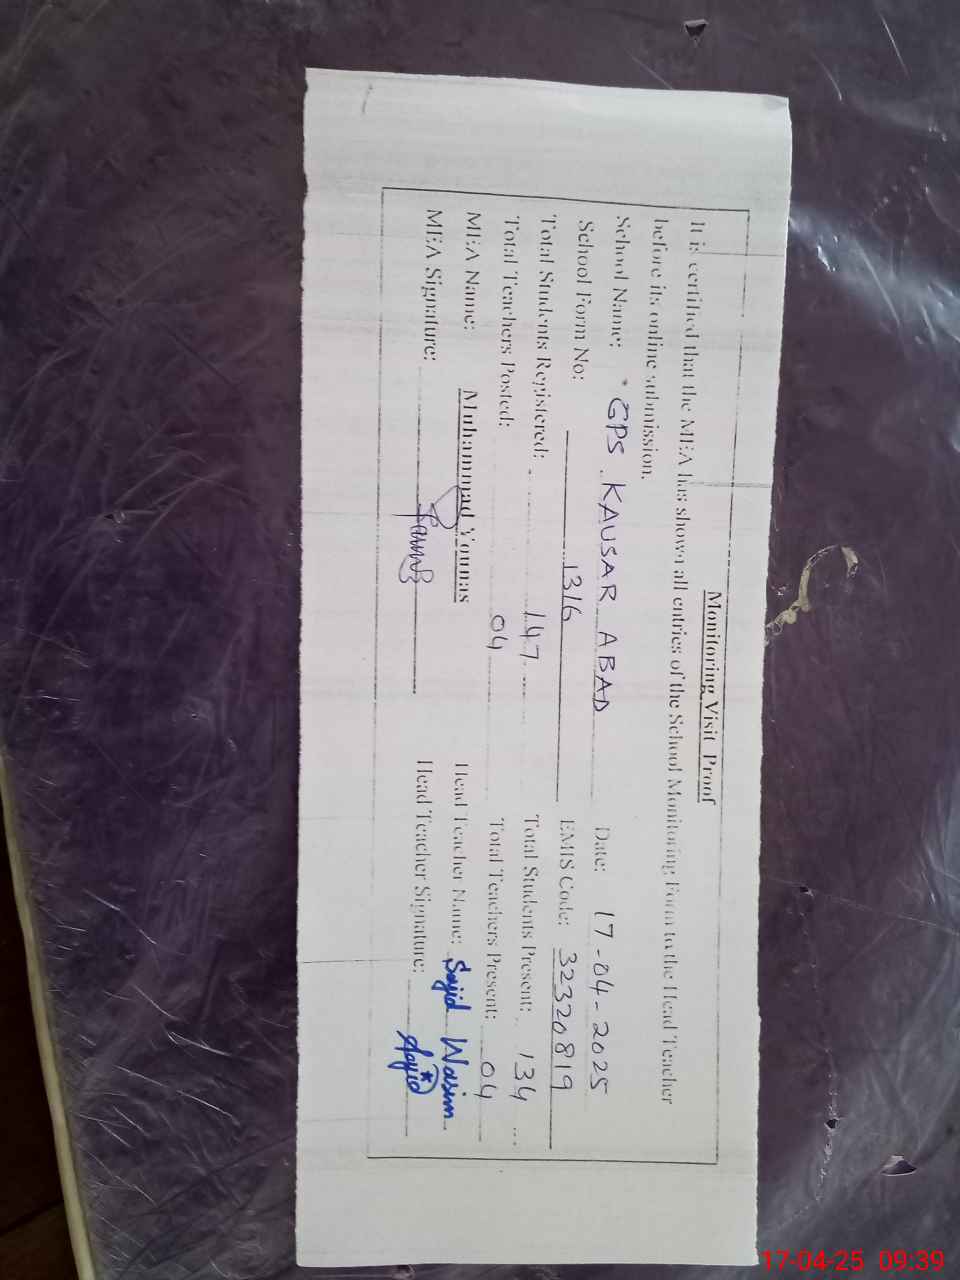 Monitoring Visit Proof
It is certified that the MEA has shown all entries of the School Monitoring Form to the Head Teacher
before its online submission.
School Name: GPS KAUSAR ABAD Date: 17-04-2025
School Form No: 1316 EMIS Code: 32320819
Total Students Registered: 147 Total Students Present: 134
Total Teachers Posted: 04 Total Teachers Present: 04
MEA Name: Muhammad Younas Head Teacher Name: Sajid Wasim
MEA Signature: Head Teacher Signature: Sajid
17-04-25 09:39